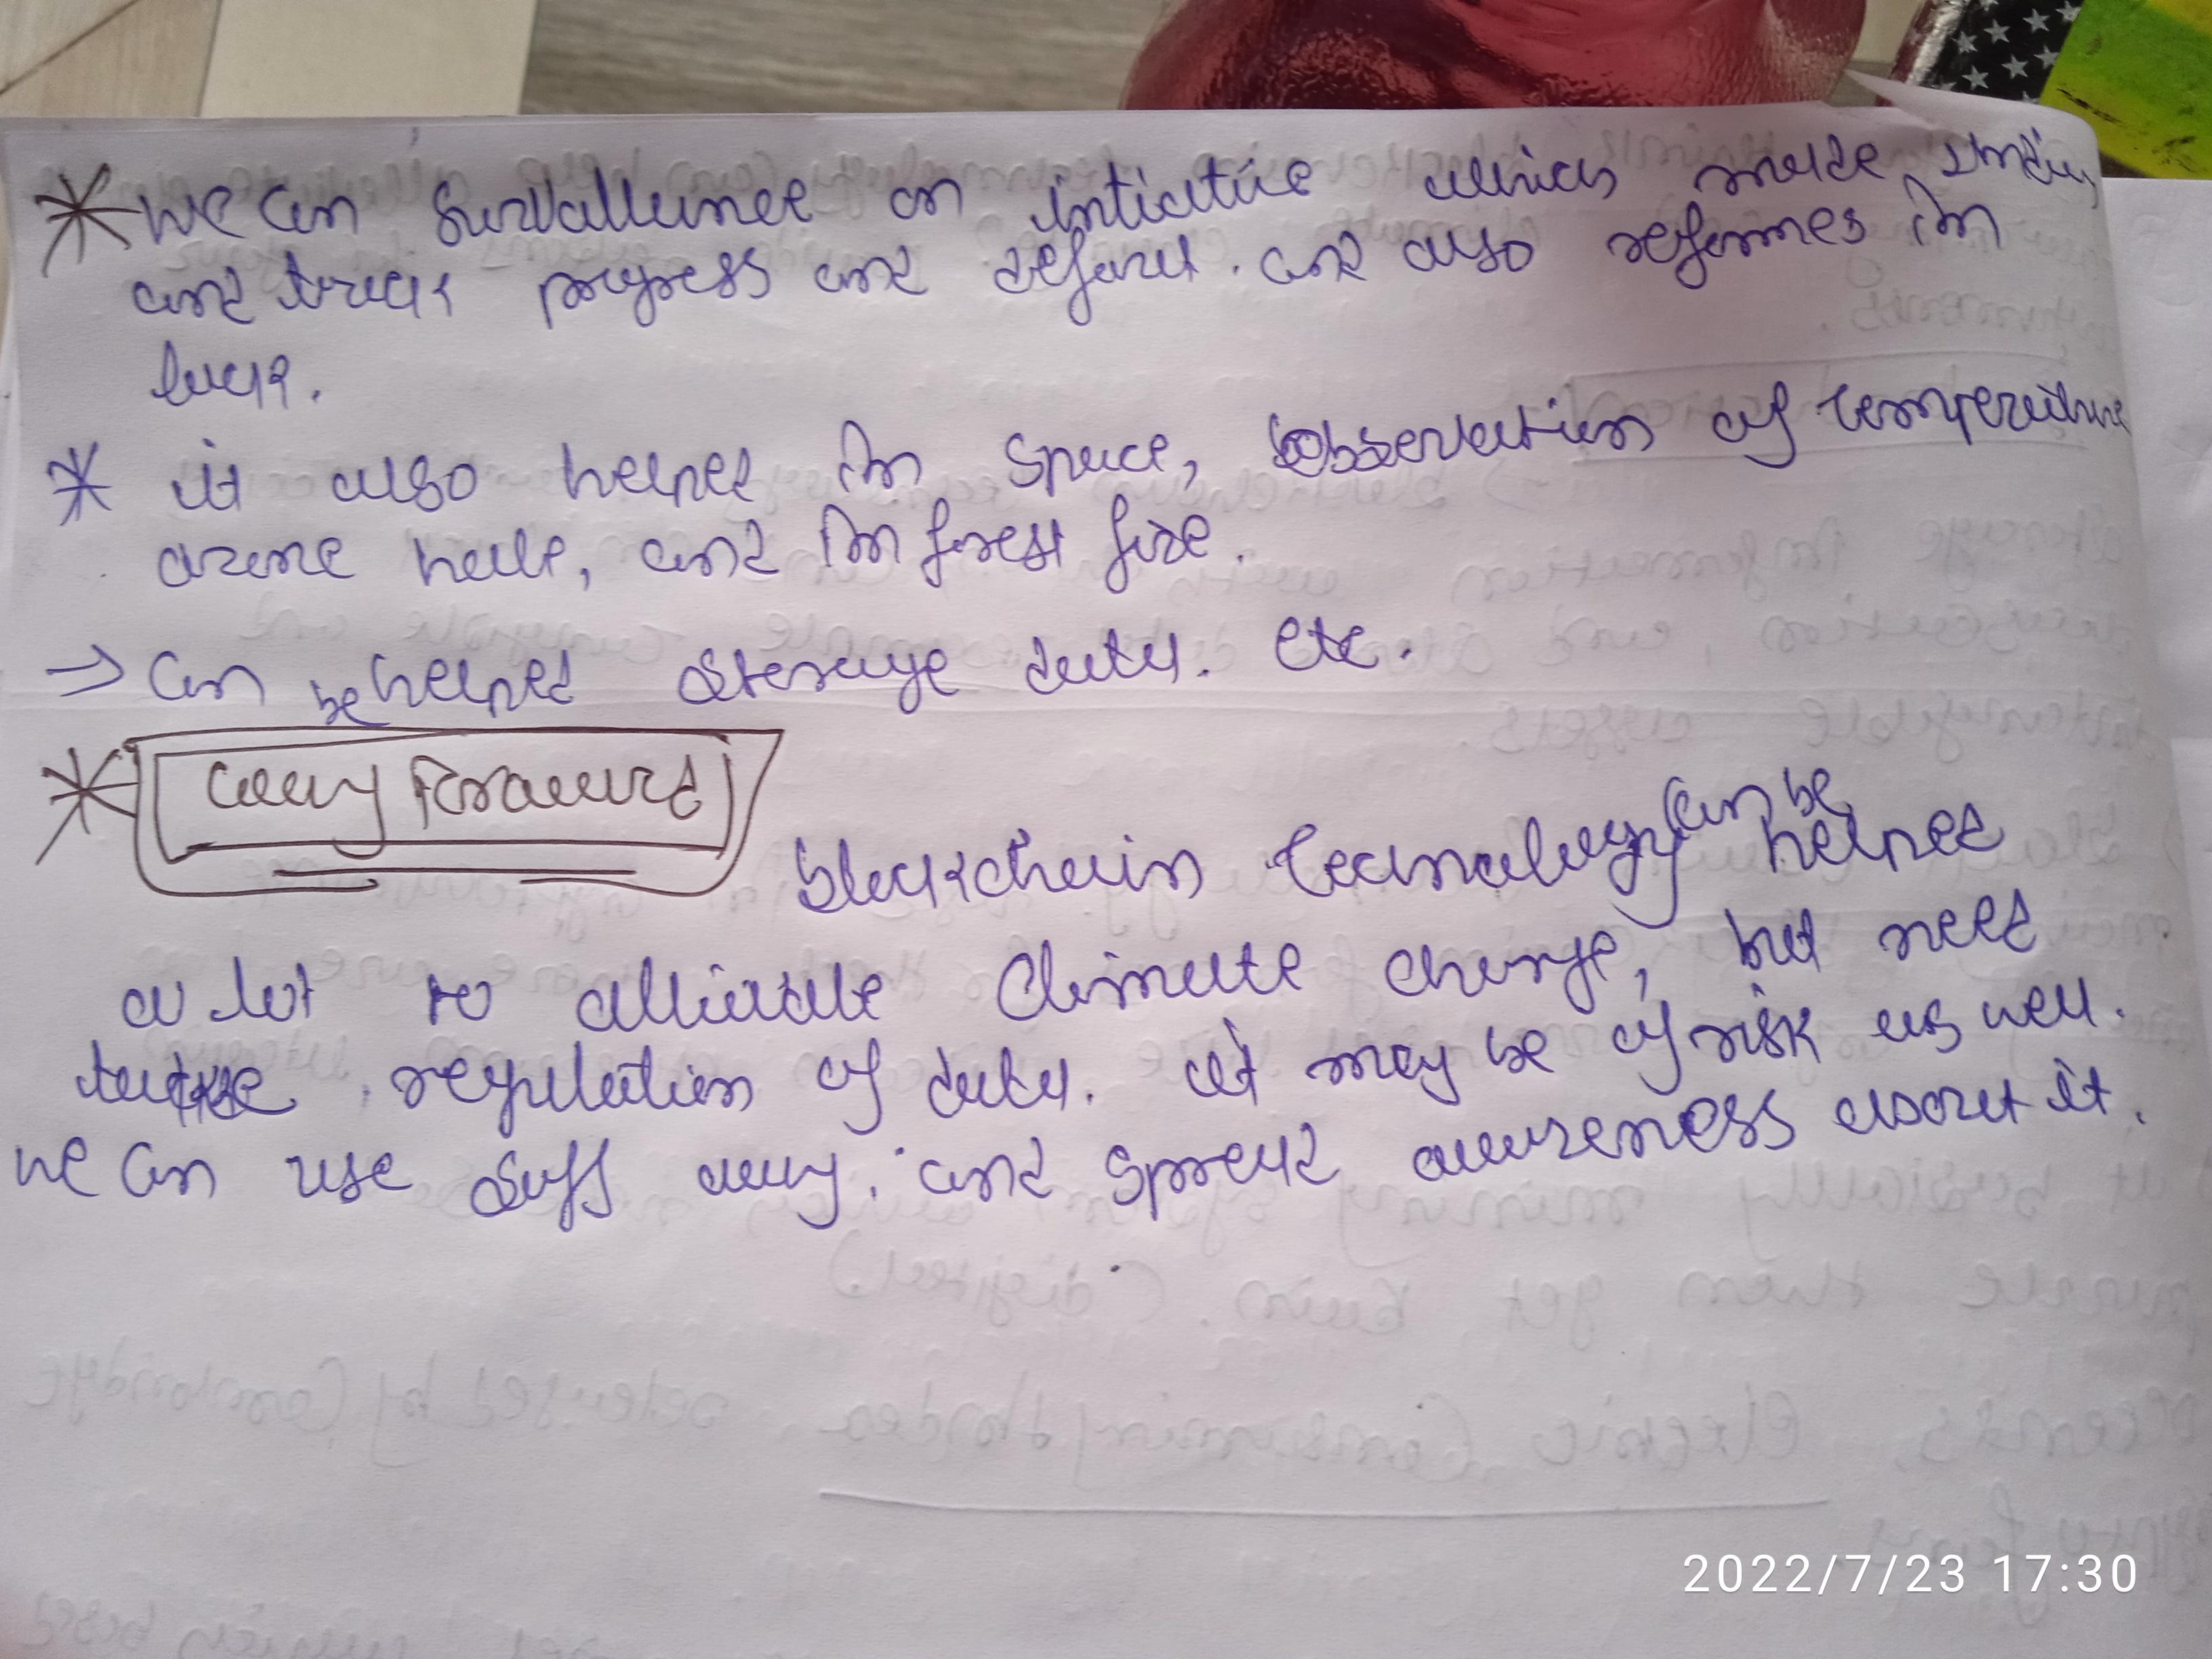 * We can survallence on intiative which made India,
and track progress and default. and also reformes in
lack.
* it also helped in space, observation of temperature
ozone hole, and in forest fire.
⇒ Can be helped storage data. etc.
* Way Forward
blockchain technology can be helped
a lot to alliviate Climate change, but need
take regulation of data. it may be of risk as well.
We can use safe way. and spread awareness about it.
2022/7/23 17:30